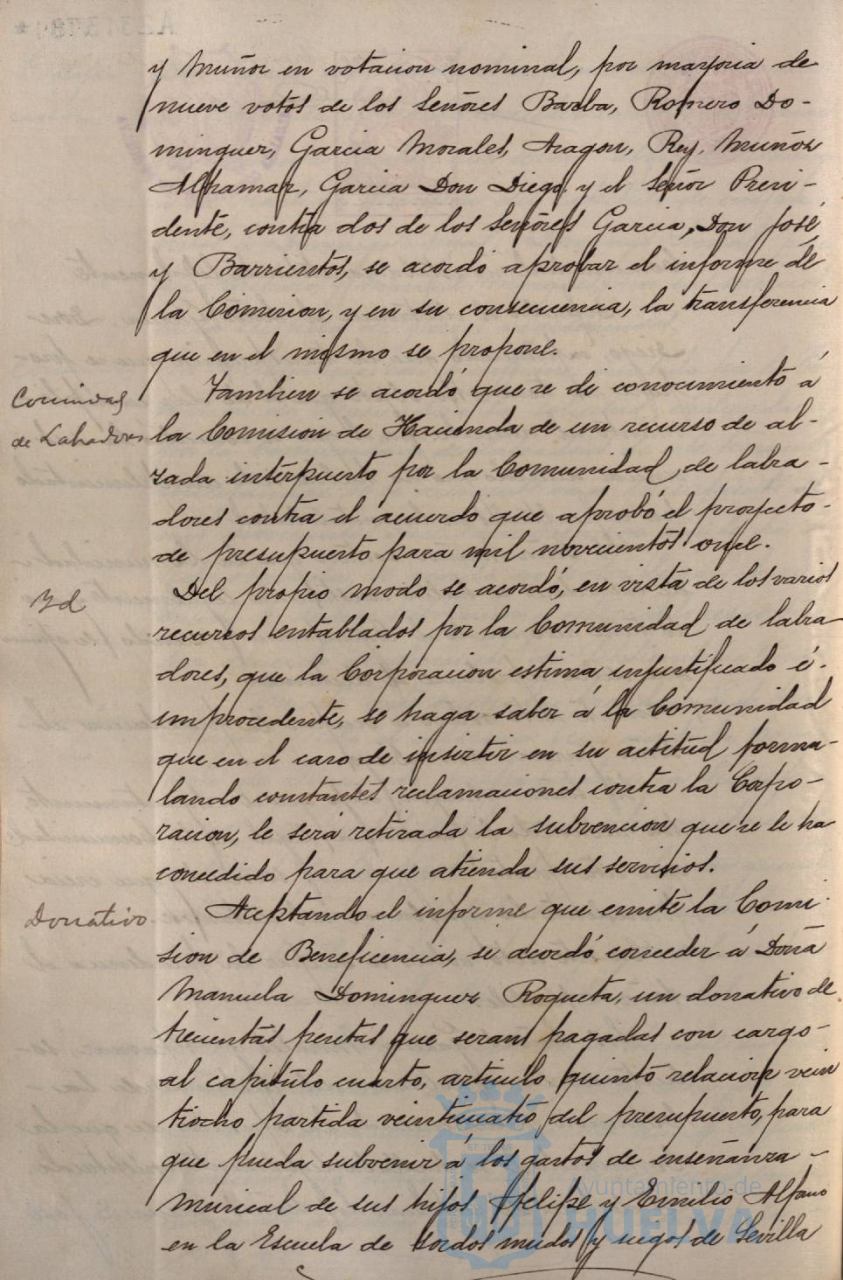 y Muñoz en votacion nominal, por mayoria de
nueve votos de los Señores Barba, Romero Do-
minguez, Garcia Morales, Aragon, Rey, Muñoz
Garcia Don Diego y el Señor Presi-
dente, contra dos de los Señores Garcia, Don José,
y Barrientos, se acordó aprobar el informe de
la Comision, y en su consecuencia, la transferencia
que en el mismo se propone.
Tambien se acordó que se dé conocimiento á
Comunidad
de Labradores
la Comision de Hacienda de un recurso de al-
zada interpuesto por la Comunidad de labra-
dores contra el acuerdo que aprobó el proyecto
de presupuesto para mil novecientos once.
Yd
Del propio modo se acordó, en vista de los varios
recursos entablados por la Comunidad de labra-
dores, que la Corporacion estima injustificado é
improcedente, se haga saber á la Comunidad
que en el caso de insistir en su actitud formu-
lando constantes reclamaciones contra la Corpo-
racion, le será retirada la subvencion que se le ha
concedido para que atienda sus servicios.
Donativo
Aceptando el informe que emite la Comi-
sion de Beneficencia, se acordó conceder á Doña
Manuela Dominguez Roqueta, un donativo de
trecientas pesetas que serans pagadas con cargo
al capitulo cuarto, articulo quinto relacion vein
tiocho partida veinticuatro del presupuesto, para
que pueda subvenir á los gastos de enseñanza
musical de sus hijos Felipe y Emilio Alfaro
en la Escuela de sordos mudos y ciegos de Sevilla
Ayuntamiento de
HUELVA